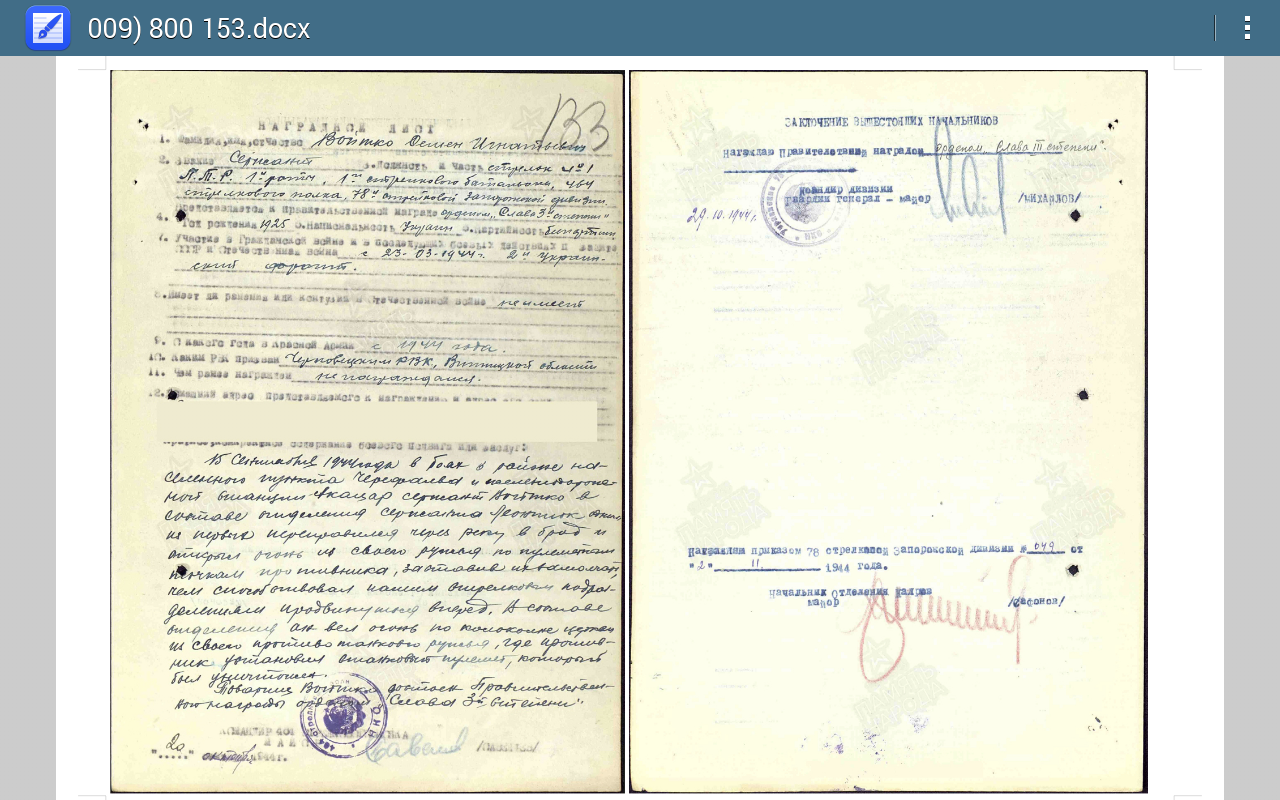 009) 800 153.docx
133
НАГРАДНОЙ ЛИСТ
1. Фамилия, имя, отчество Войтко Семен Игнатьевич
2. Звание Сержант 3. Должность и часть стрелок №1
П.Т.Р. 1й роты, 1го стрелкового батальона, 464
стрелкового полка, 78й стрелковой Запорожской дивизии
Представляется к правительственной награде орденом „Слава 3й степени"
4. Год рождения 1925 5. Национальность Украин 6. Партийность беспартийн.
7. Участие в Гражданской войне и в последующих боевых действиях по защите
СССР и Отечественная война с 23-03-1944 г. 2й Украин-
ский фронт.
8. Имеет ли ранения или контузии в Отечественной войне не имеет
9. С какого года в Красной Армии с 1944 года.
10. Каким РВК призван Черновецким РВК, Винницкой области
11. Чем ранее награжден не награждался.
12. Домашний адрес представляемого к награждению и адрес его
Краткое конкретное содержание боевого подвига или заслуг:
15 Сентября 1944 года в боях в районе на-
селенного пункта и железнодорож-
ной станции сержант Войтко в
составе отделения сержанта Леонтюк один
из первых переправился через реку в брод и
открыл огонь из своего ружья по пулеметным
точкам противника, заставив их замолчать,
чем способствовал нашим стрелковым подраз-
делениям продвинуться вперед. В составе
отделения он вел огонь по колокольне церкви
из своего противотанкового ружья, где против-
ник установил станковый пулемет, который
был уничтожен.
Товарищ Войтко достоин Правительствен-
ной награды орденом „Слава 3й степени"
МАЙОР
"20" октября 1944 г.
ЗАКЛЮЧЕНИЕ ВЫШЕСТОЯЩИХ НАЧАЛЬНИКОВ
Награждаю Правительственной наградой орденом „Слава III степени".
Командир дивизии
гвардии генерал - майор /МИХАЙЛОВ/
29.10.1944 г.
Награжден приказом 78 стрелковой Запорожской дивизии № 049 от
"2" 11 1944 года.
Начальник Отделения кадров
майор /Сафонов/